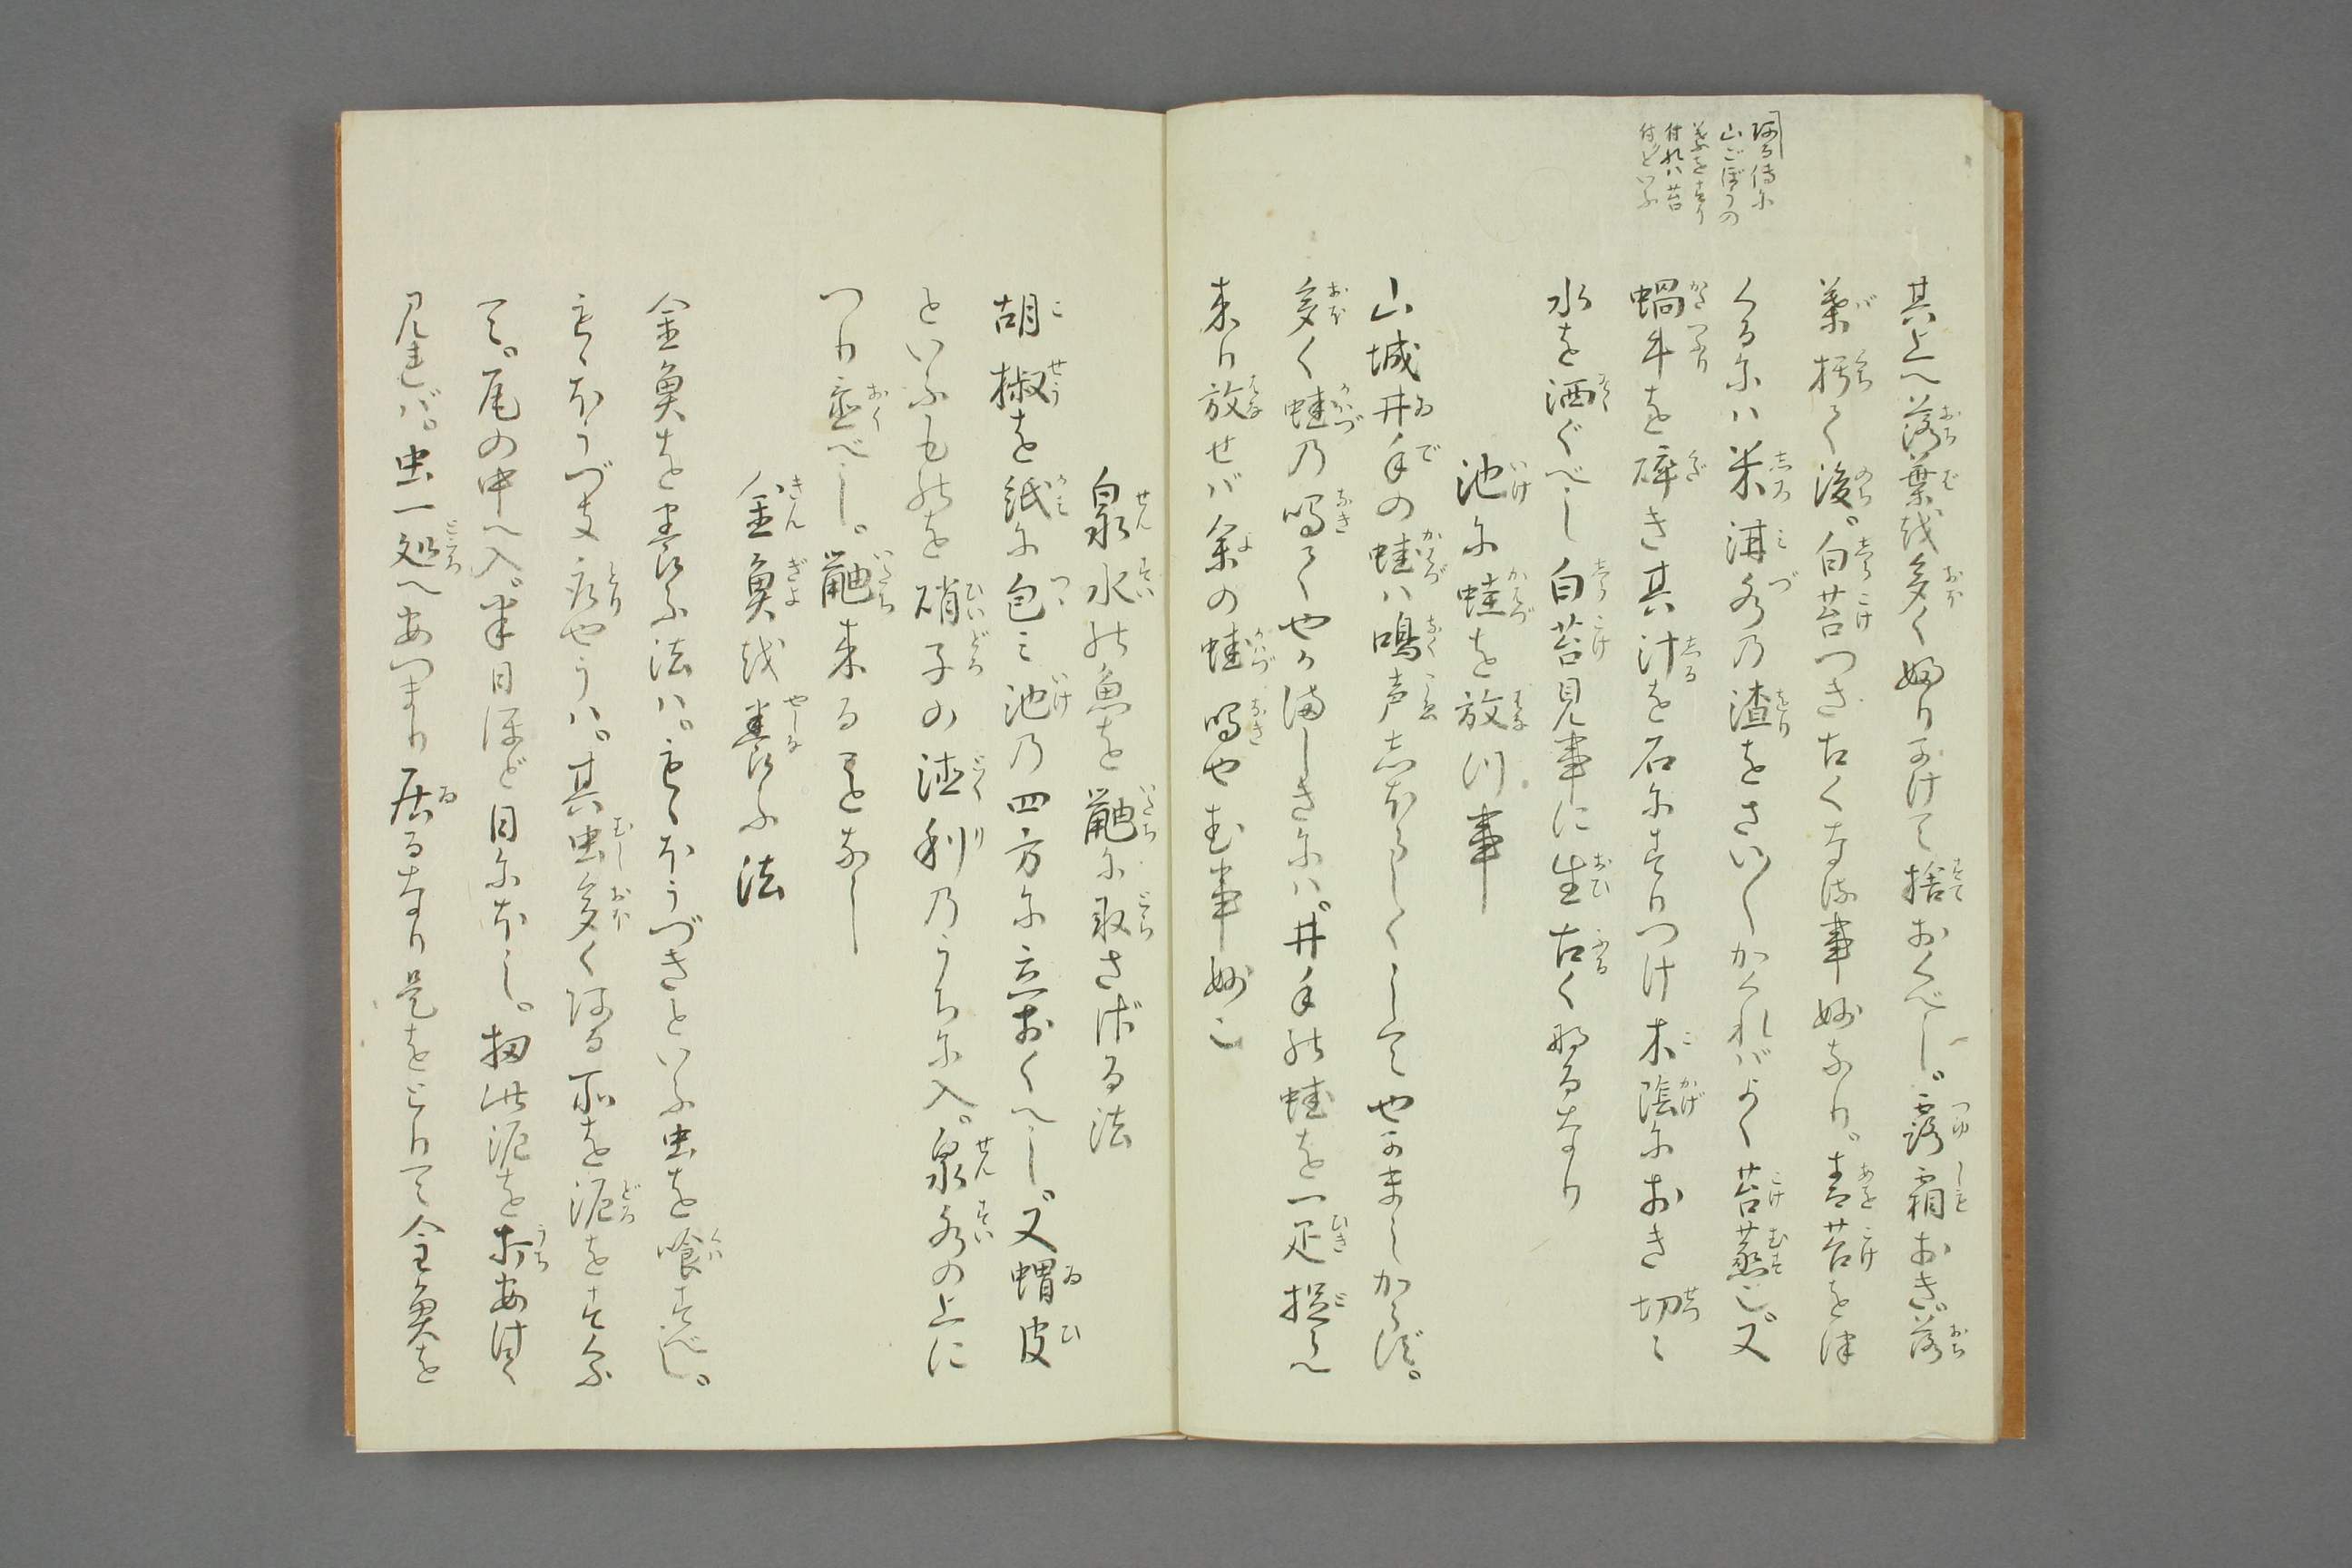 或る傳ニ
山ごぼうの
葉をすり
付れバ苔
付といふ
其上へ落葉を多くふりかけて捨おくべし。露霜おき。落
葉朽て後。白苔つき古くなる事妙なり。青苔をつ
くるにハ米泔水の渣をさい〳〵かくればよく苔蒸也。又
蝸牛を碎き其汁を石にすりつけ木陰におき切〻
水を洒ぐべし白苔見事に生古く成るなり
池に蛙を放つ事
山城井手の蛙ハ鳴声しほらしくしてやかましからず。
多く蛙の鳴てやかましきにハ。井手の蛙を一疋捉へ
来り放せバ余の蛙鳴やむ事妙也
泉水の魚を鼬に取さぼる法
胡椒を紙に包ミ池の四方に立おくへし。又蝟皮
といふものを硝子の徳利のうちに入。泉水の上に
つり置べし。鼬来る事なし
金魚を養ふ法
金魚を養ふ法ハ。もゝほうづきといふ虫を喰すべし。
もゝほうづき取やうハ。其虫多くある所を泥をすくふ
て。尾の中へ入。半日ほど日にほし。扨此泥を打あけて
見れバ。虫一処へあつまり居るなり是をとりて金魚を